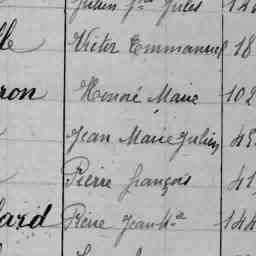 Julien Jules
lle Victor Emmanuel 18
ron Honoré Marie 102
Jean Marie Julien
Pierre François 41
lard Pierre Jean Me 144